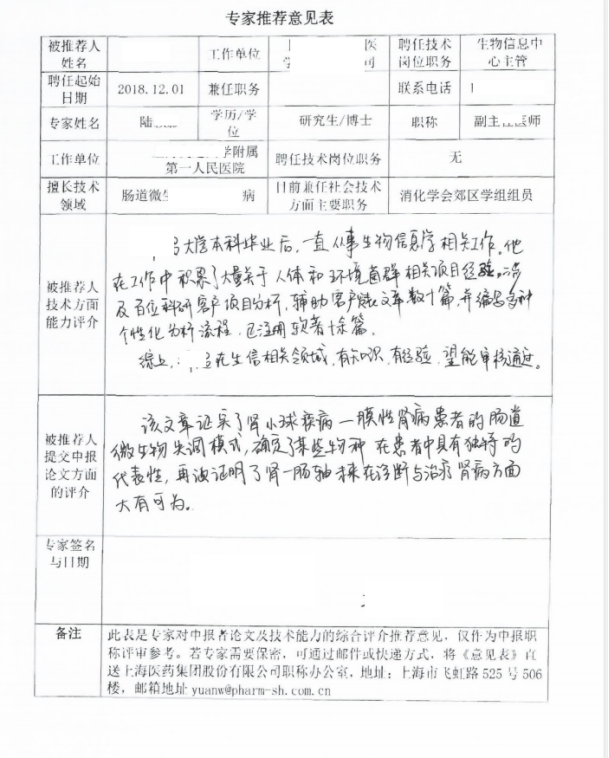 专家推荐意见表
被推荐人姓名 工作单位 医 司 聘任技术岗位职务 生物信息中心主管
聘任起始日期 2018.12.01 兼任职务 联系电话
专家姓名 陆 学历/学位 研究生/博士 职称 副主 医师
工作单位 学附属第一人民医院 聘任技术岗位职务 无
擅长技术领域 肠道微生 病 目前兼任社会技术方面主要职务 消化学会郊区学组组员
被推荐人技术方面能力评介
大学本科毕业后,一直从事生物信息学相关工作。他
在工作中积累了大量关于人体和环境菌群相关项目经验。涉
及百位科研客户项目分析,辅助客户发文章数十篇,并编写多种
个性化分析流程,已注册软著十余篇。
综上, 在生信相关领域,有知识,有经验,望能审核通过。
被推荐人提交申报论文方面的评介
该文章证实了肾小球疾病一膜性肾病患者的肠道
微生物失调模式,确定了某些物种在患者中具有独特的
代表性,再次证明了肾一肠轴未来在诊断与治疗肾病方面
大有可为。
专家签名与日期
备注
此表是专家对申报者论文及技术能力的综合评介推荐意见,仅作为申报职
称评审参考。若专家需要保密,可通过邮件或快递方式,将《意见表》直
送上海医药集团股份有限公司职称办公室,地址:上海市飞虹路 525 号 506
楼,邮箱地址 yuanw@pharm-sh.com.cn